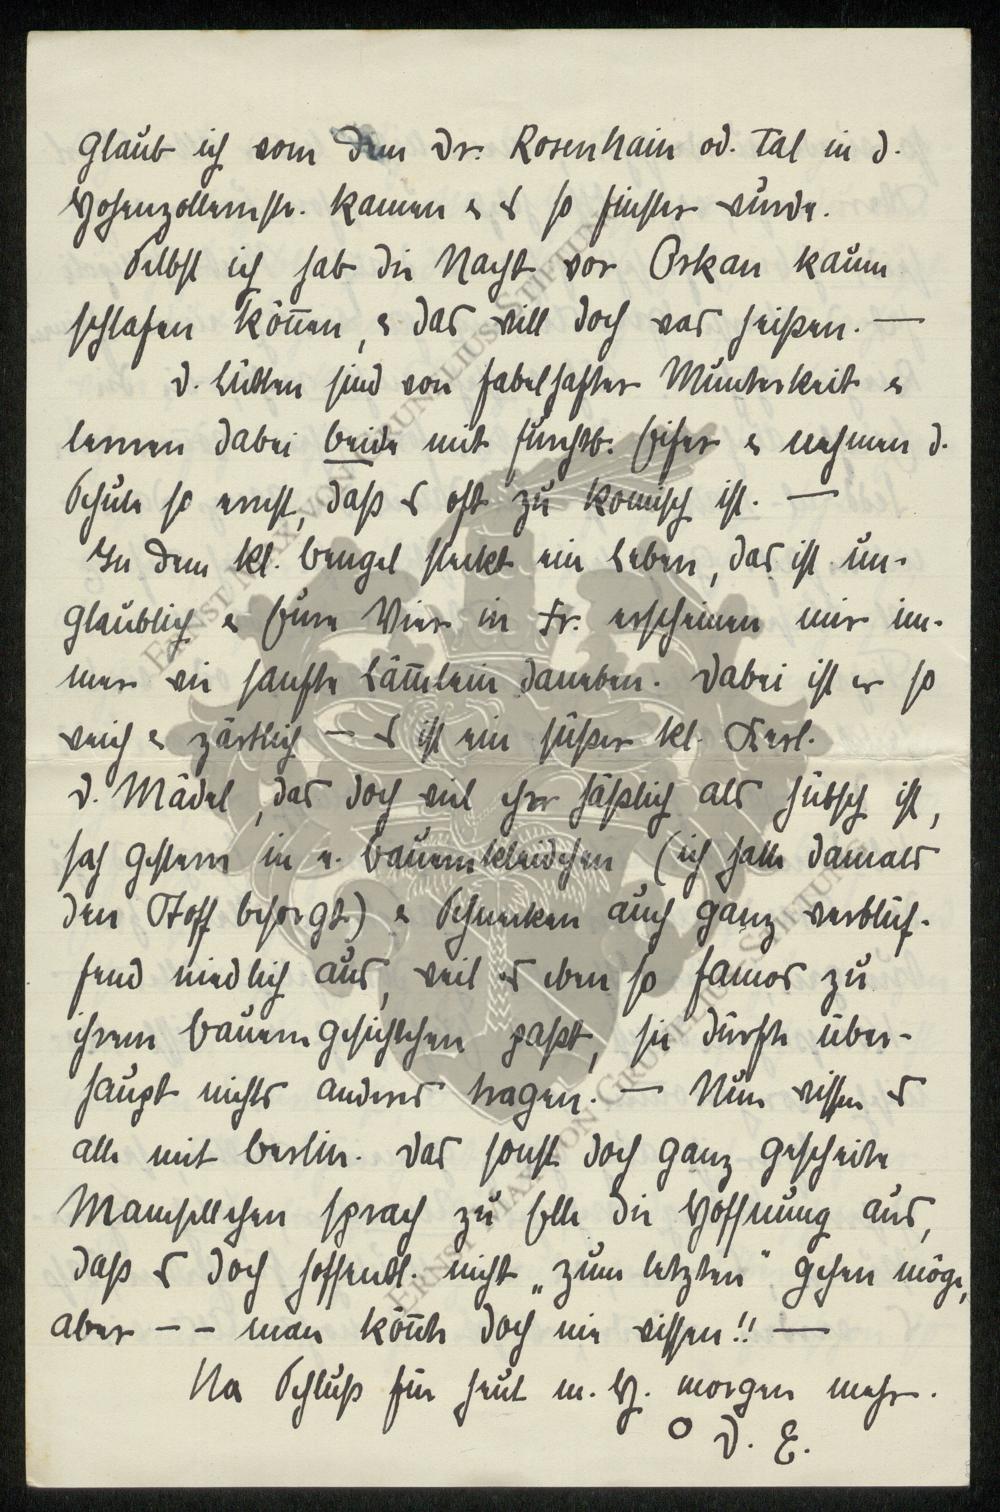 glaub ich vom dem Dr. Rosenhain od. Tal in d.
Hohenzollernstr. kamen & es so finster wurde.
Selbst ich hab die Nacht vor Orkan kaum
schlafen kön̄en, & das will doch was heißen. —
d. Lütten sind von fabelhafter Munterkeit &
lernen dabei beide mit furchtb. Eifer & nehmen d.
Schule so ernst, daß es oft zu komisch ist. —
In dem kl. Bengel steckt ein Leben, das ist un-
glaublich & Eure Vier in Fr. erscheinen mir im-
mer wie sanfte Läm̄lein daneben. Dabei ist er so
weich & zärtlich – es ist ein süßer kl. Kerl.
d. Mädel, das doch viel eher häßlich als hübsch ist,
sah gestern in e. Bauernkleidchen (ich hatte damals
den Stoff besorgt) & Schnecken auch ganz verblüf-
fend niedlich aus, weil es eben so famos zu
ihrem Bauerngesichtchen paßt, sie dürfte über-
haupt nichts anderes tragen. — Nun wissen es
alle mit Berlin. Das sonst doch ganz gescheite
Mamsellchen sprach zu Elle die Hoffnung aus,
daß es doch hoffentl. nicht „zum letzten" gehen möge,
aber – – man kön̄te doch nie wissen!! —
Na Schluß für heut m. H. morgen mehr.
O D. E.
ERNST MAX VON GRUNELIUS-STIFTUNG
ERNST MAX VON GRUNELIUS-STIFTUNG